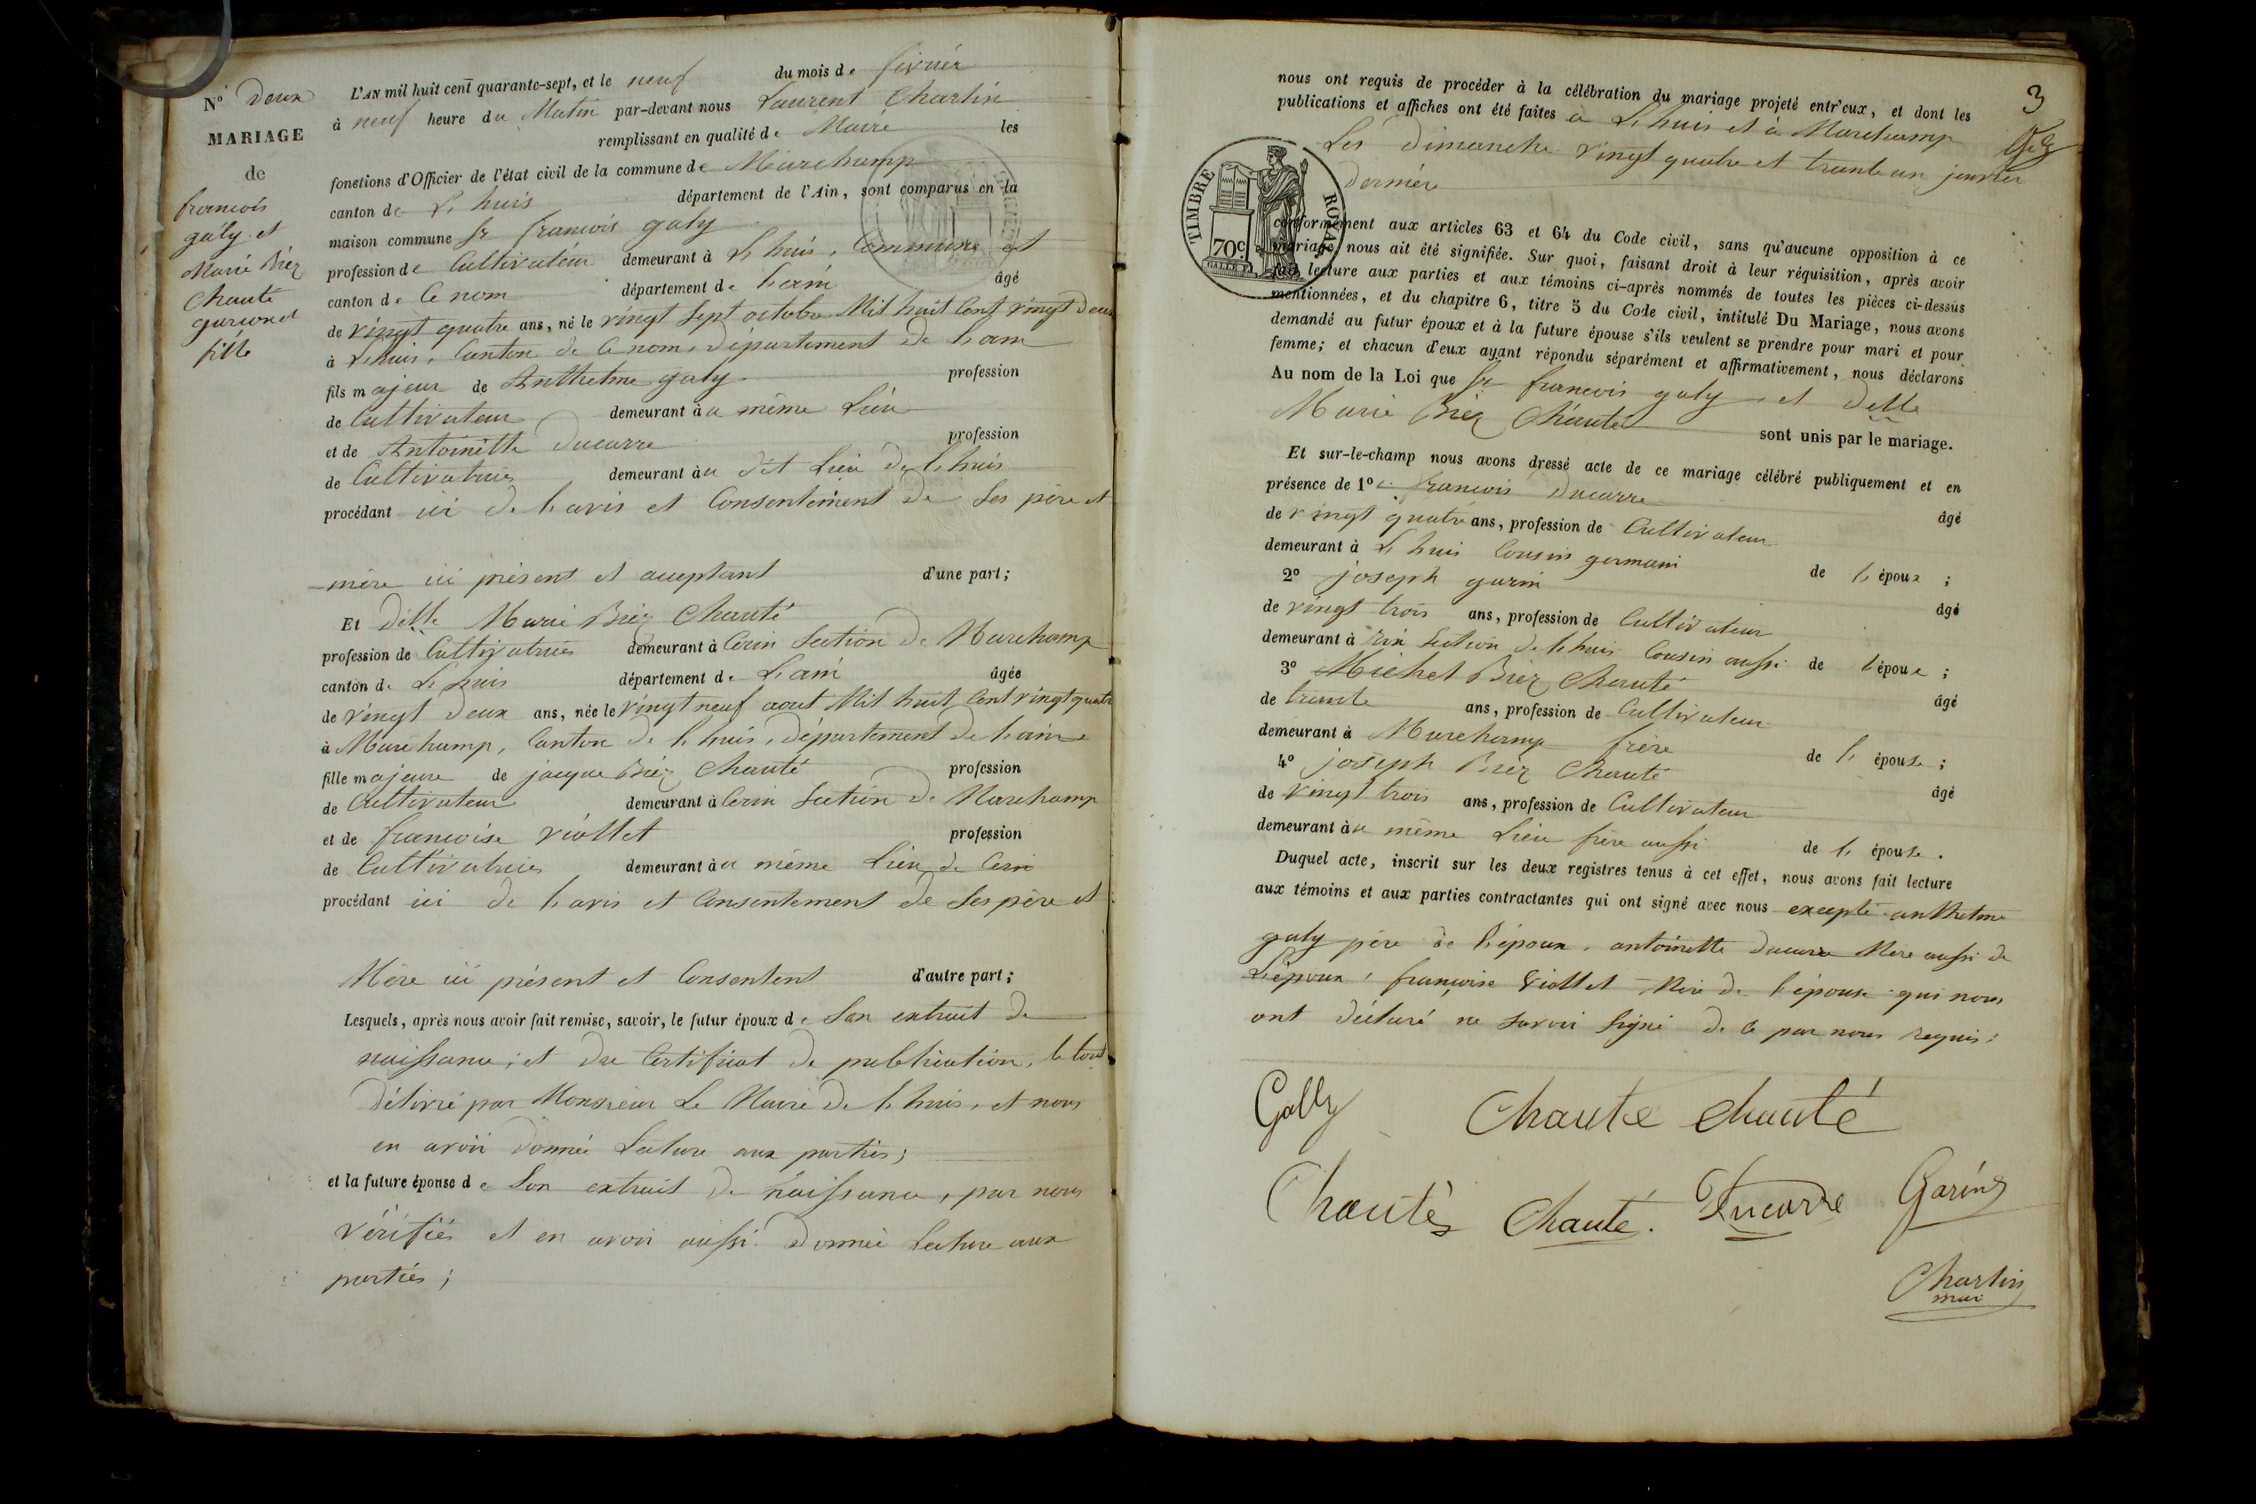 N° deux
MARIAGE
de
francois
galy et
Marie Briez
Chanté
garson et
fille
L'AN mil huit cent quarante-sept, et le neuf du mois de fevrier
à neuf heure du Matin par-devant nous Laurent Charlin
remplissant en qualité de Maire les
fonctions d'Officier de l'état civil de la commune de Marchamp
canton de L huis département de l'Ain, sont comparus en la
maison commune Sr francois galy
profession de Cultivateur demeurant à L huis, Commune et
canton de Ce nom département de L'ain âgé
de vingt quatre ans, né le vingt sept octobre Mil huit Cent vingt deux
à L huis, Canton de Ce nom, département de L ain
fils majeur de Anthelme galy profession
de Cultivateur demeurant au même Lieu
et de Antoinette Ducarre profession
de Cultivatrice demeurant au dit Lieu de L huis
procédant ici de L avis et Consentement de Ses père et
mère ici présent et aceptant d'une part;
Et delle Marie Briez Chanté
profession de Cultivatrice demeurant à Cerin Section de Marchamp
canton de L huis département de L ain âgée
de vingt deux ans, née le vingt neuf aout Mil huit Cent vingt quatre
à Marchamp, Canton de L huis, département de L ain
fille majeure de jacque Briez Chanté profession
de Cultivateur demeurant à Cerin Section de Marchamp
et de francoise viollet profession
de Cultivatrice demeurant au même Lieu de Cerin
procédant ici de L avis et Consentement de Ses père et
Mère ici présent et Consentent d'autre part;
Lesquels, après nous avoir fait remise, savoir, le futur époux de Son extrait de
naissance, et du Certificat de publication, le tout
délivré par Monsieur Le Maire de L huis, et nous
en avoir donnée Lecture aux parties;
et la future épouse de Son extrait de naissance, par nous
vérifiés et en avoir aussi donnée Lecture aux
parties;
3
nous ont requis de procéder à la célébration du mariage projeté entr'eux, et dont les
publications et affiches ont été faites a L huis et à Marchamp
Les dimanche vingt quatre et trante un janvier
dernier
TIMBRE ROYAL
70c
conformément aux articles 63 et 64 du Code civil, sans qu'aucune opposition à ce
mariage nous ait été signifiée. Sur quoi, faisant droit à leur réquisition, après avoir
fait lecture aux parties et aux témoins ci-après nommés de toutes les pièces ci-dessus
mentionnées, et du chapitre 6, titre 5 du Code civil, intitulé Du Mariage, nous avons
demandé au futur époux et à la future épouse s'ils veulent se prendre pour mari et pour
femme; et chacun d'eux ayant répondu séparément et affirmativement, nous déclarons
Au nom de la Loi que Sr francois galy et delle
Marie Briez Chanté sont unis par le mariage.
Et sur-le-champ nous avons dressé acte de ce mariage célébré publiquement et en
présence de 1° francois Ducarre âgé
de vingt quatre ans, profession de Cultivateur
demeurant à L huis Cousin germain de L époux;
2° joseph garin âgé
de vingt trois ans, profession de Cultivateur
demeurant à Section de L huis Cousin aussi de L époux;
3° Michel Briez Chanté âgé
de trante ans, profession de Cultivateur
demeurant à Marchamp frère de L épouse;
4° joseph Briez Chanté âgé
de vingt trois ans, profession de Cultivateur
demeurant au même Lieu frère aussi de L épouse.
Duquel acte, inscrit sur les deux registres tenus à cet effet, nous avons fait lecture
aux témoins et aux parties contractantes qui ont signé avec nous excepté anthelme
galy père de L'époux, antoinette ducarre Mère aussi de
L'époux, françoise viollet Mère de L'épouse qui nous
ont déclaré ne savoir signé de ce par nous requis;
Gally Chante Chanté
Chantéz Chanté. Ducarre Garin
Charlin
mair